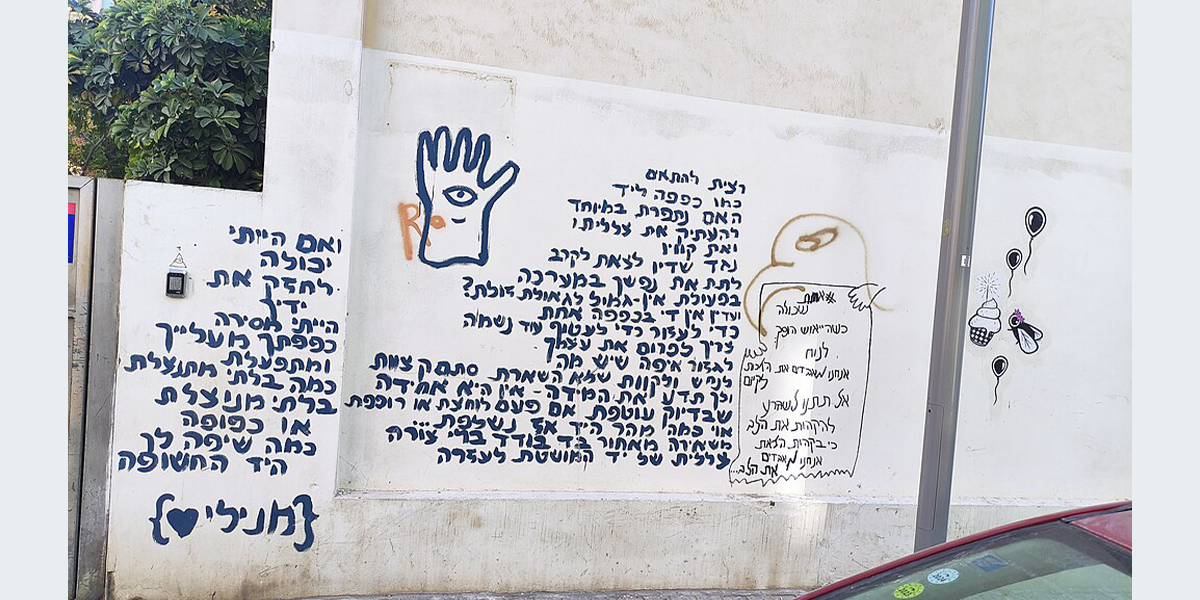 רצית להתאים
כמו כפפה ליד
האם נתפרת במיוחד
להעתיק את צלליתו
ואת קוויו
נגד שדיו לצאת לקרב
לתת את נפשך במערכה
בפעולת אין-גמול לגאולת זולת?
ועדין אין די בכפפה אחת
כדי לעזור כדי לעטיף עוד נשמה
צריך לפרום את עצמך
לגזור איפה שיש מה
לנחש ולקוות שמא השארת סתם קצוות
וכך תדע את המידה - אין היא אחידה
שבדיוק עוטפת אם פעם לוחצת או רופפת
או כמה מהר היך אז נשלפת...
משאירה מאחור בד בודד בלי צורה
צללית של יד המושטת לעזרה
ואם הייתי
יכולה
לחזק את
ידיך
הייתי מסירה
כפפתך מעלייך
ומתפעלת
כמה בלתי מתנצלת
בלתי מנוצלת
או כפופה
כמה שיפה לך
היד החשופה
{מנילי}
שכולה
כשהייאוש הופך
לנוח
אנחנו מאבדים את הזכות
לקיום
אל תתנו לשגרה
להקהות את הלב
כי בקהות הזאת
אנחנו מאבדים
את הלב...